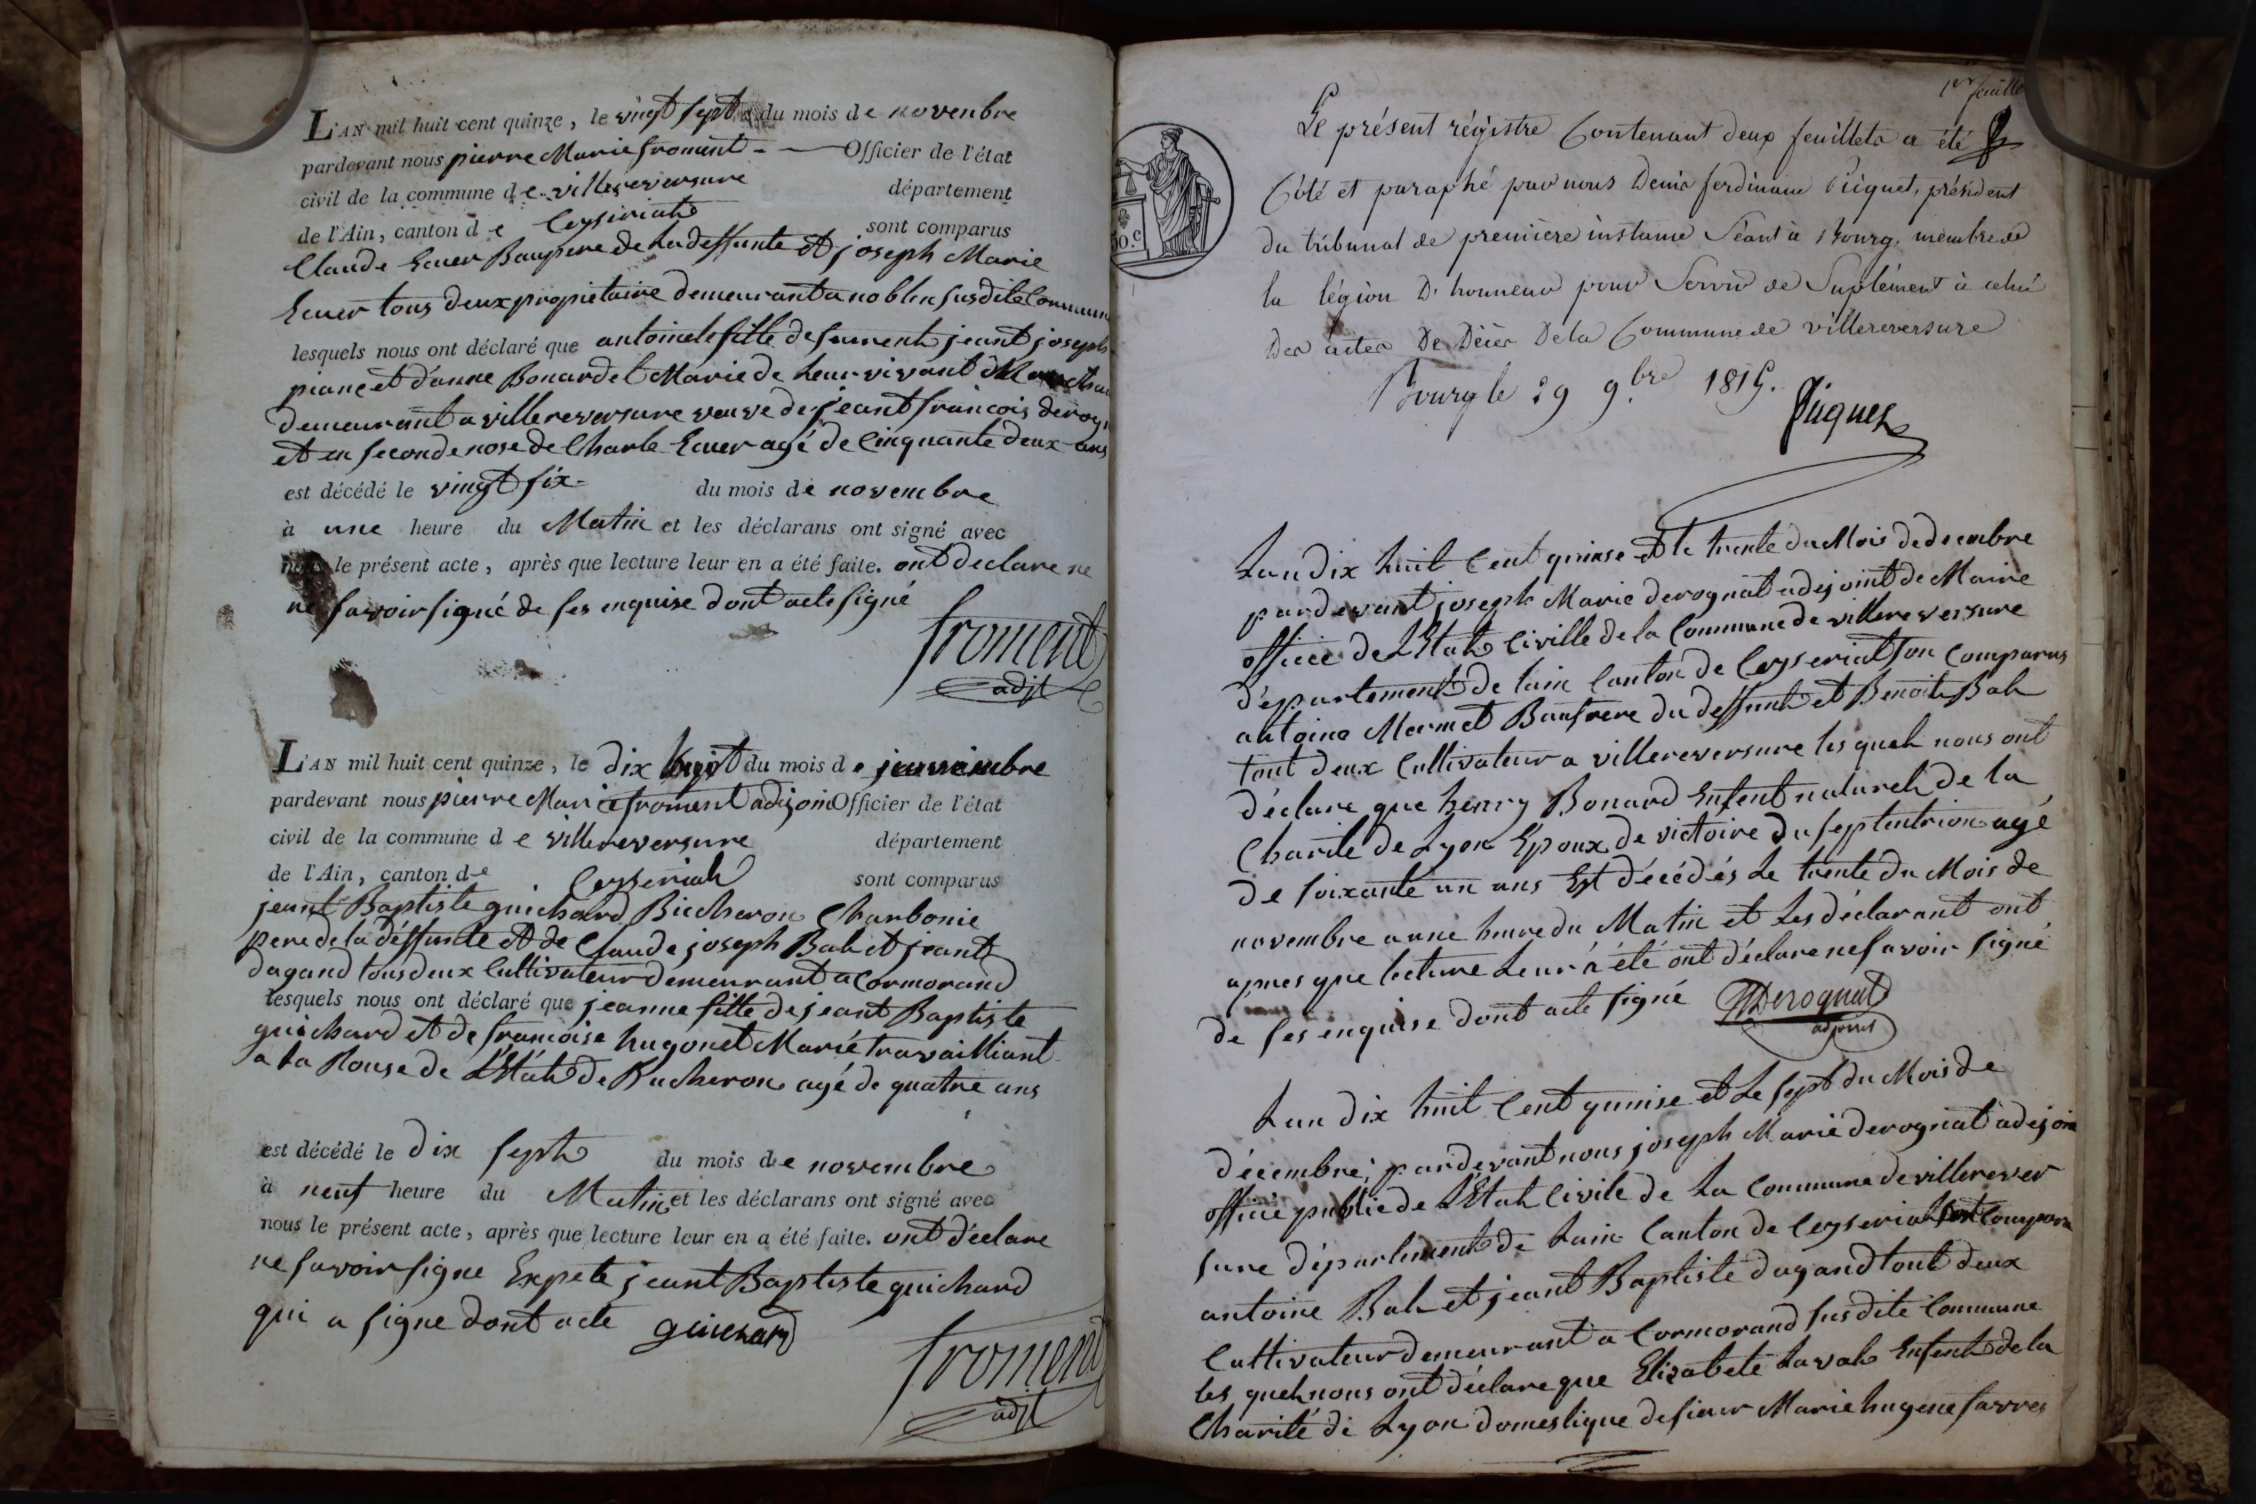 L'AN mil huit cent quinze, le vingt sept du mois de novenbre
pardevant nous pierre Marie froment - Officier de l'état
civil de la commune de villereversure département
de l'Ain, canton de Ceysiriat sont comparus
Claude Eauer Baupere de La deffunte et joseph Marie
Eauer tous deux propietaire demeurant a noblen susdite Commune
lesquels nous ont déclaré que antoinete fille de jeant joseph
piance et d'anne Bonardet Marie de Leur vivant
demeurant a villereversure veuve de jeant francois
et en seconde nose de Charle Eauer agé de Cinquante deux ans
est décédé le vingt six du mois de novembre
à une heure du Matin et les déclarans ont signé avec
nous le présent acte, après que lecture leur en a été faite. ont declare ne
ne savoir signé de ses enquise dont acte signé
froment
adjt
L'AN mil huit cent quinze, le dix huit du mois de
pardevant nous pierre Marie froment adizoin Officier de l'état
civil de la commune de villereversure département
de l'Ain, canton de Ceyseriat sont comparus
jeant Baptiste guichard Bucheron Charbonie
pere de la déffunte et de Claude joseph Bal et jeant
dagand tous deux Cultivateur demeurant a Cormorand
lesquels nous ont déclaré que jeanne fille de jeant Baptiste
guichard et de francoise hugonet Marié travailliant
a la Rouse de L'État de Bucheron agé de quatre ans
est décédé le dix sept du mois de novembre
à neuf heure du Matin et les déclarans ont signé avec
nous le présent acte, après que lecture leur en a été faite. ont déclare
ne savoir signe Expete jeant Baptiste guichard
qui a signe dont acte guichard
froment
adjt
1er feuillet
Le présent régistre Contenant deux feuillets a été
Côté et paraphé par nous Denis ferdinand Piquet, président
du tribunal de première instance Séant à Bourg. membre de
la légion D'honneur pour Servir de Suplément à celui
Des actes De Décès De la Commune de villereversure
Bourg le 29 9.bre 1815.
Piquet
Lan dix huit Cent quinse et le trente du Mois de decembre
pardevant joseph Marie derognat adejoint de Maire
officie de LEtat Civille de la Commune de villereversure
département de lain Canton de Ceyseriat son Comparus
antoine Mermet Baufrere du deffunt et Benoit Bal
tout deux Cultivateur a villereversure les quel nous ont
déclare que henry Bonard Enfent naturel de la
Charité de Lyon Epoux de victoire du septentrion agé
de soixante un ans Est décédés Le trente du Mois de
novembre a une heure du Matin et Les déclarant ont
apres que lecture Leur à été ont déclare ne savoir signé
de ses enquise dont acte signé Derognat
adjoint
Lan dix huit Cent quinise et Le sept du Mois de
décembre; pardevant nous joseph Marie derognat adejoin
officié publie de LEtat Civile de La Commune de villerever
sure département de Lain Canton de Ceyseriat
antoine Bal et jeant Baptiste dagand tout deux
Cultivateur demeurant a Cormorand susdite Commune
les quel nous ont déclare que Elizabete Laval Enfent de la
Charité de Lyon domestique de sieur Marie hugene favres